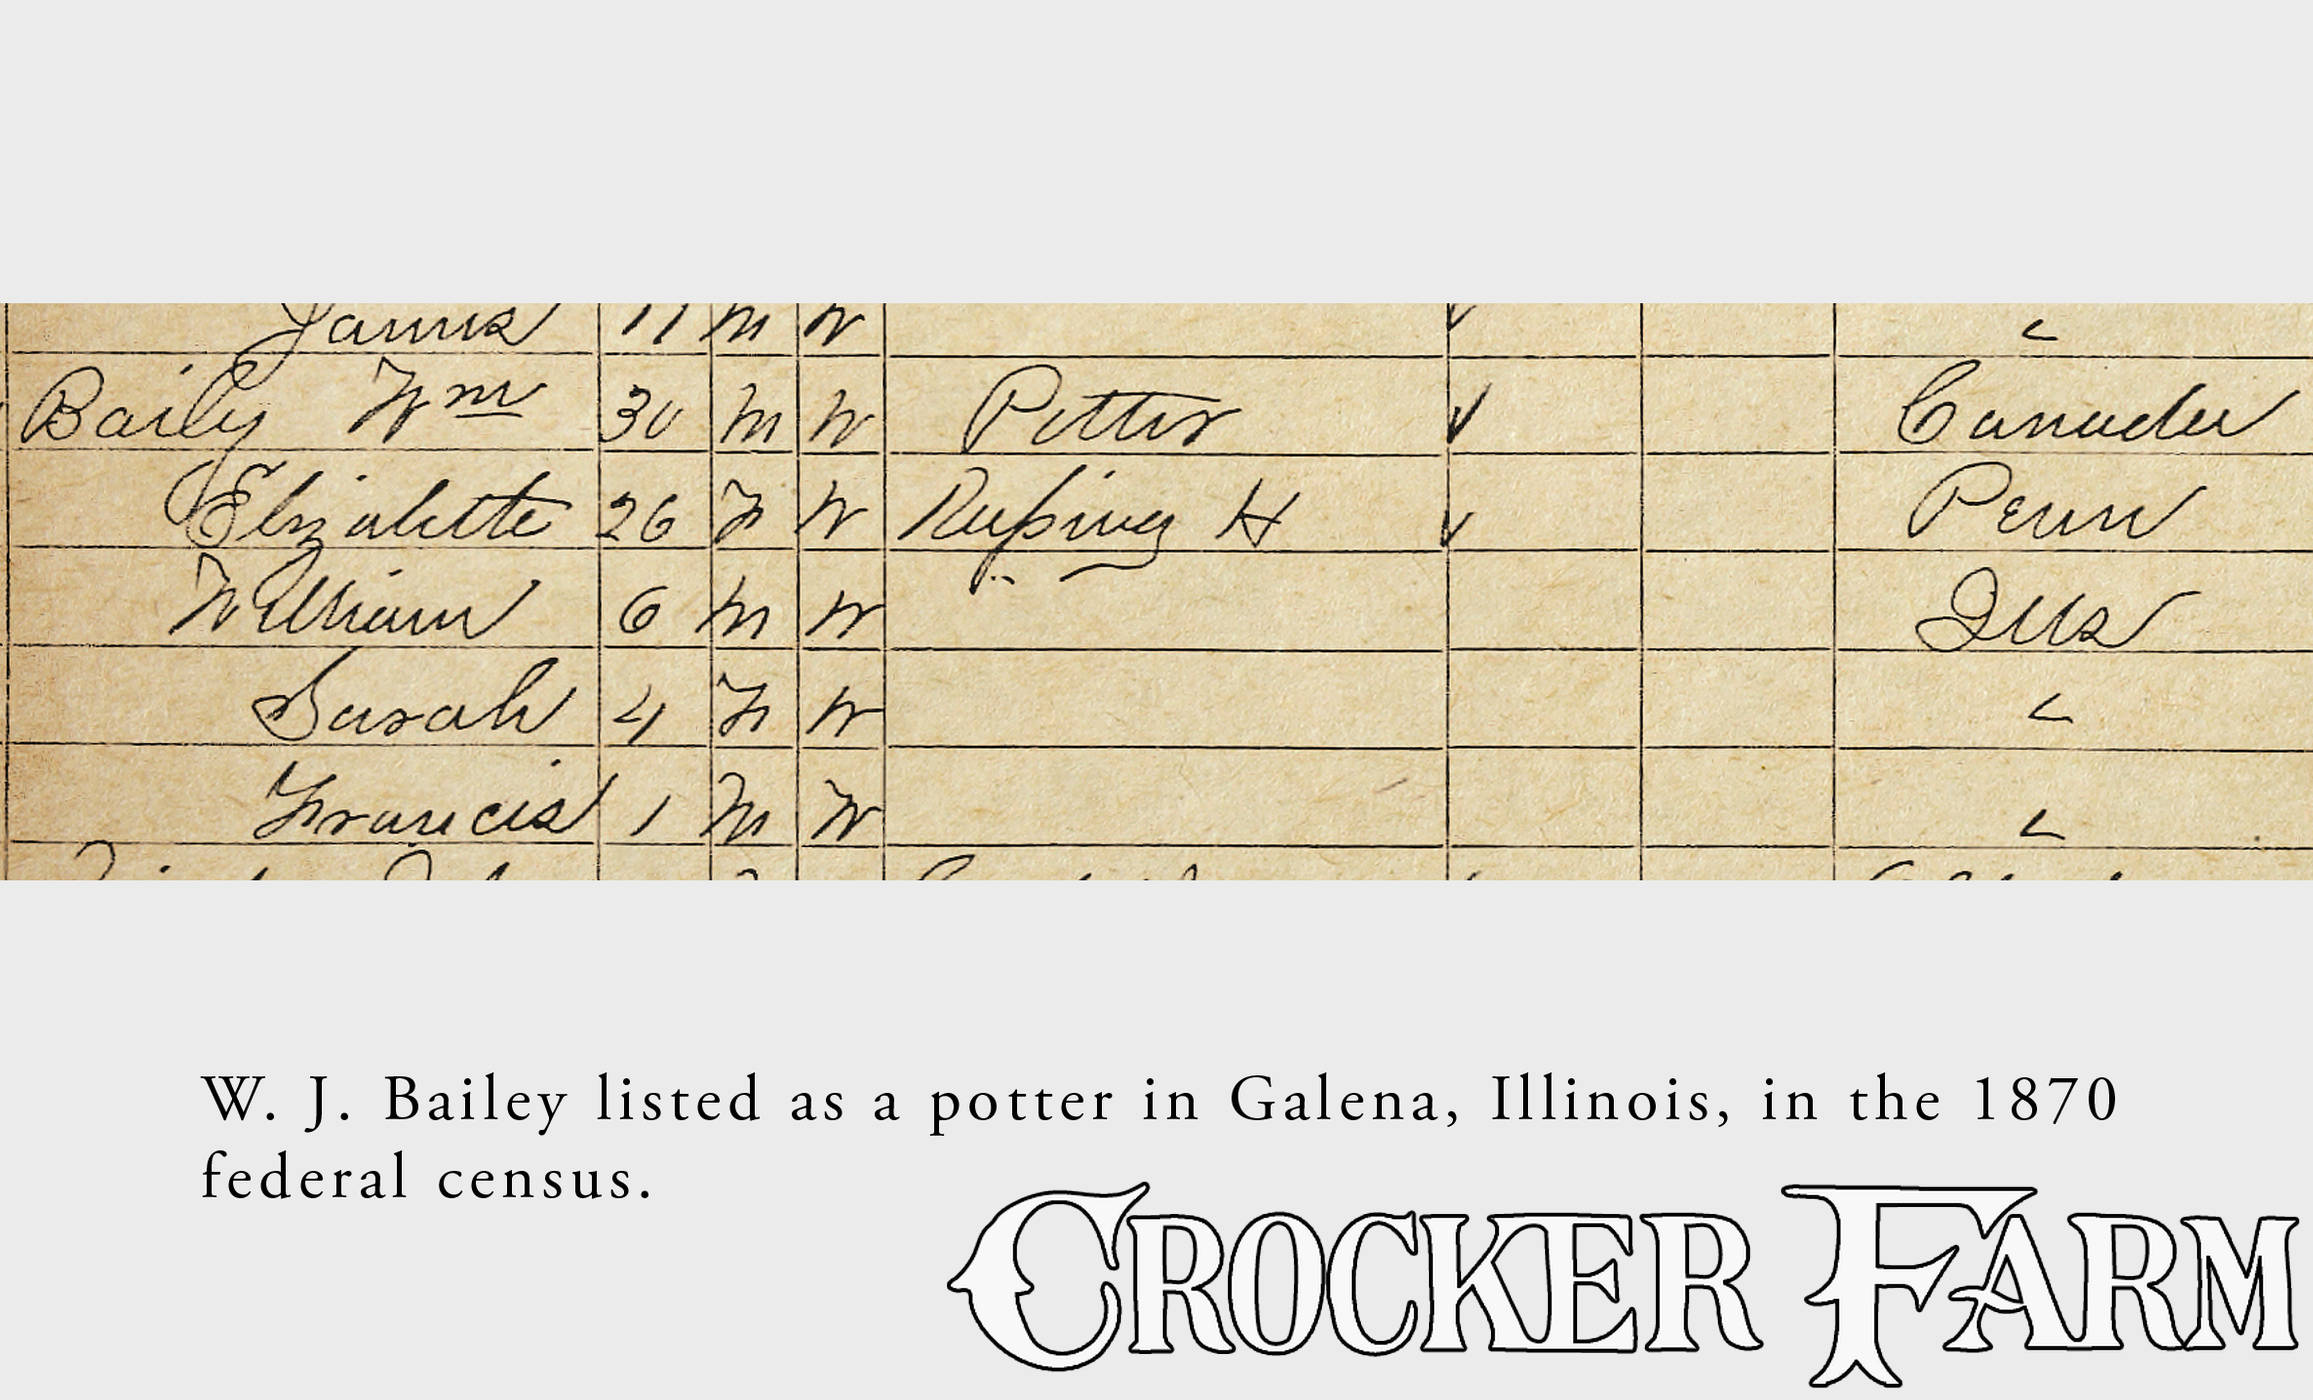 James 11 M W "
Baily Wm 30 M W Potter ✓ Canada
Elizabette 26 F W Keeping H ✓ Penn
William 6 M W Ills
Sarah 4 F W "
Francis 1 M W "
W. J. Bailey listed as a potter in Galena, Illinois, in the 1870
federal census.
CROCKER FARM